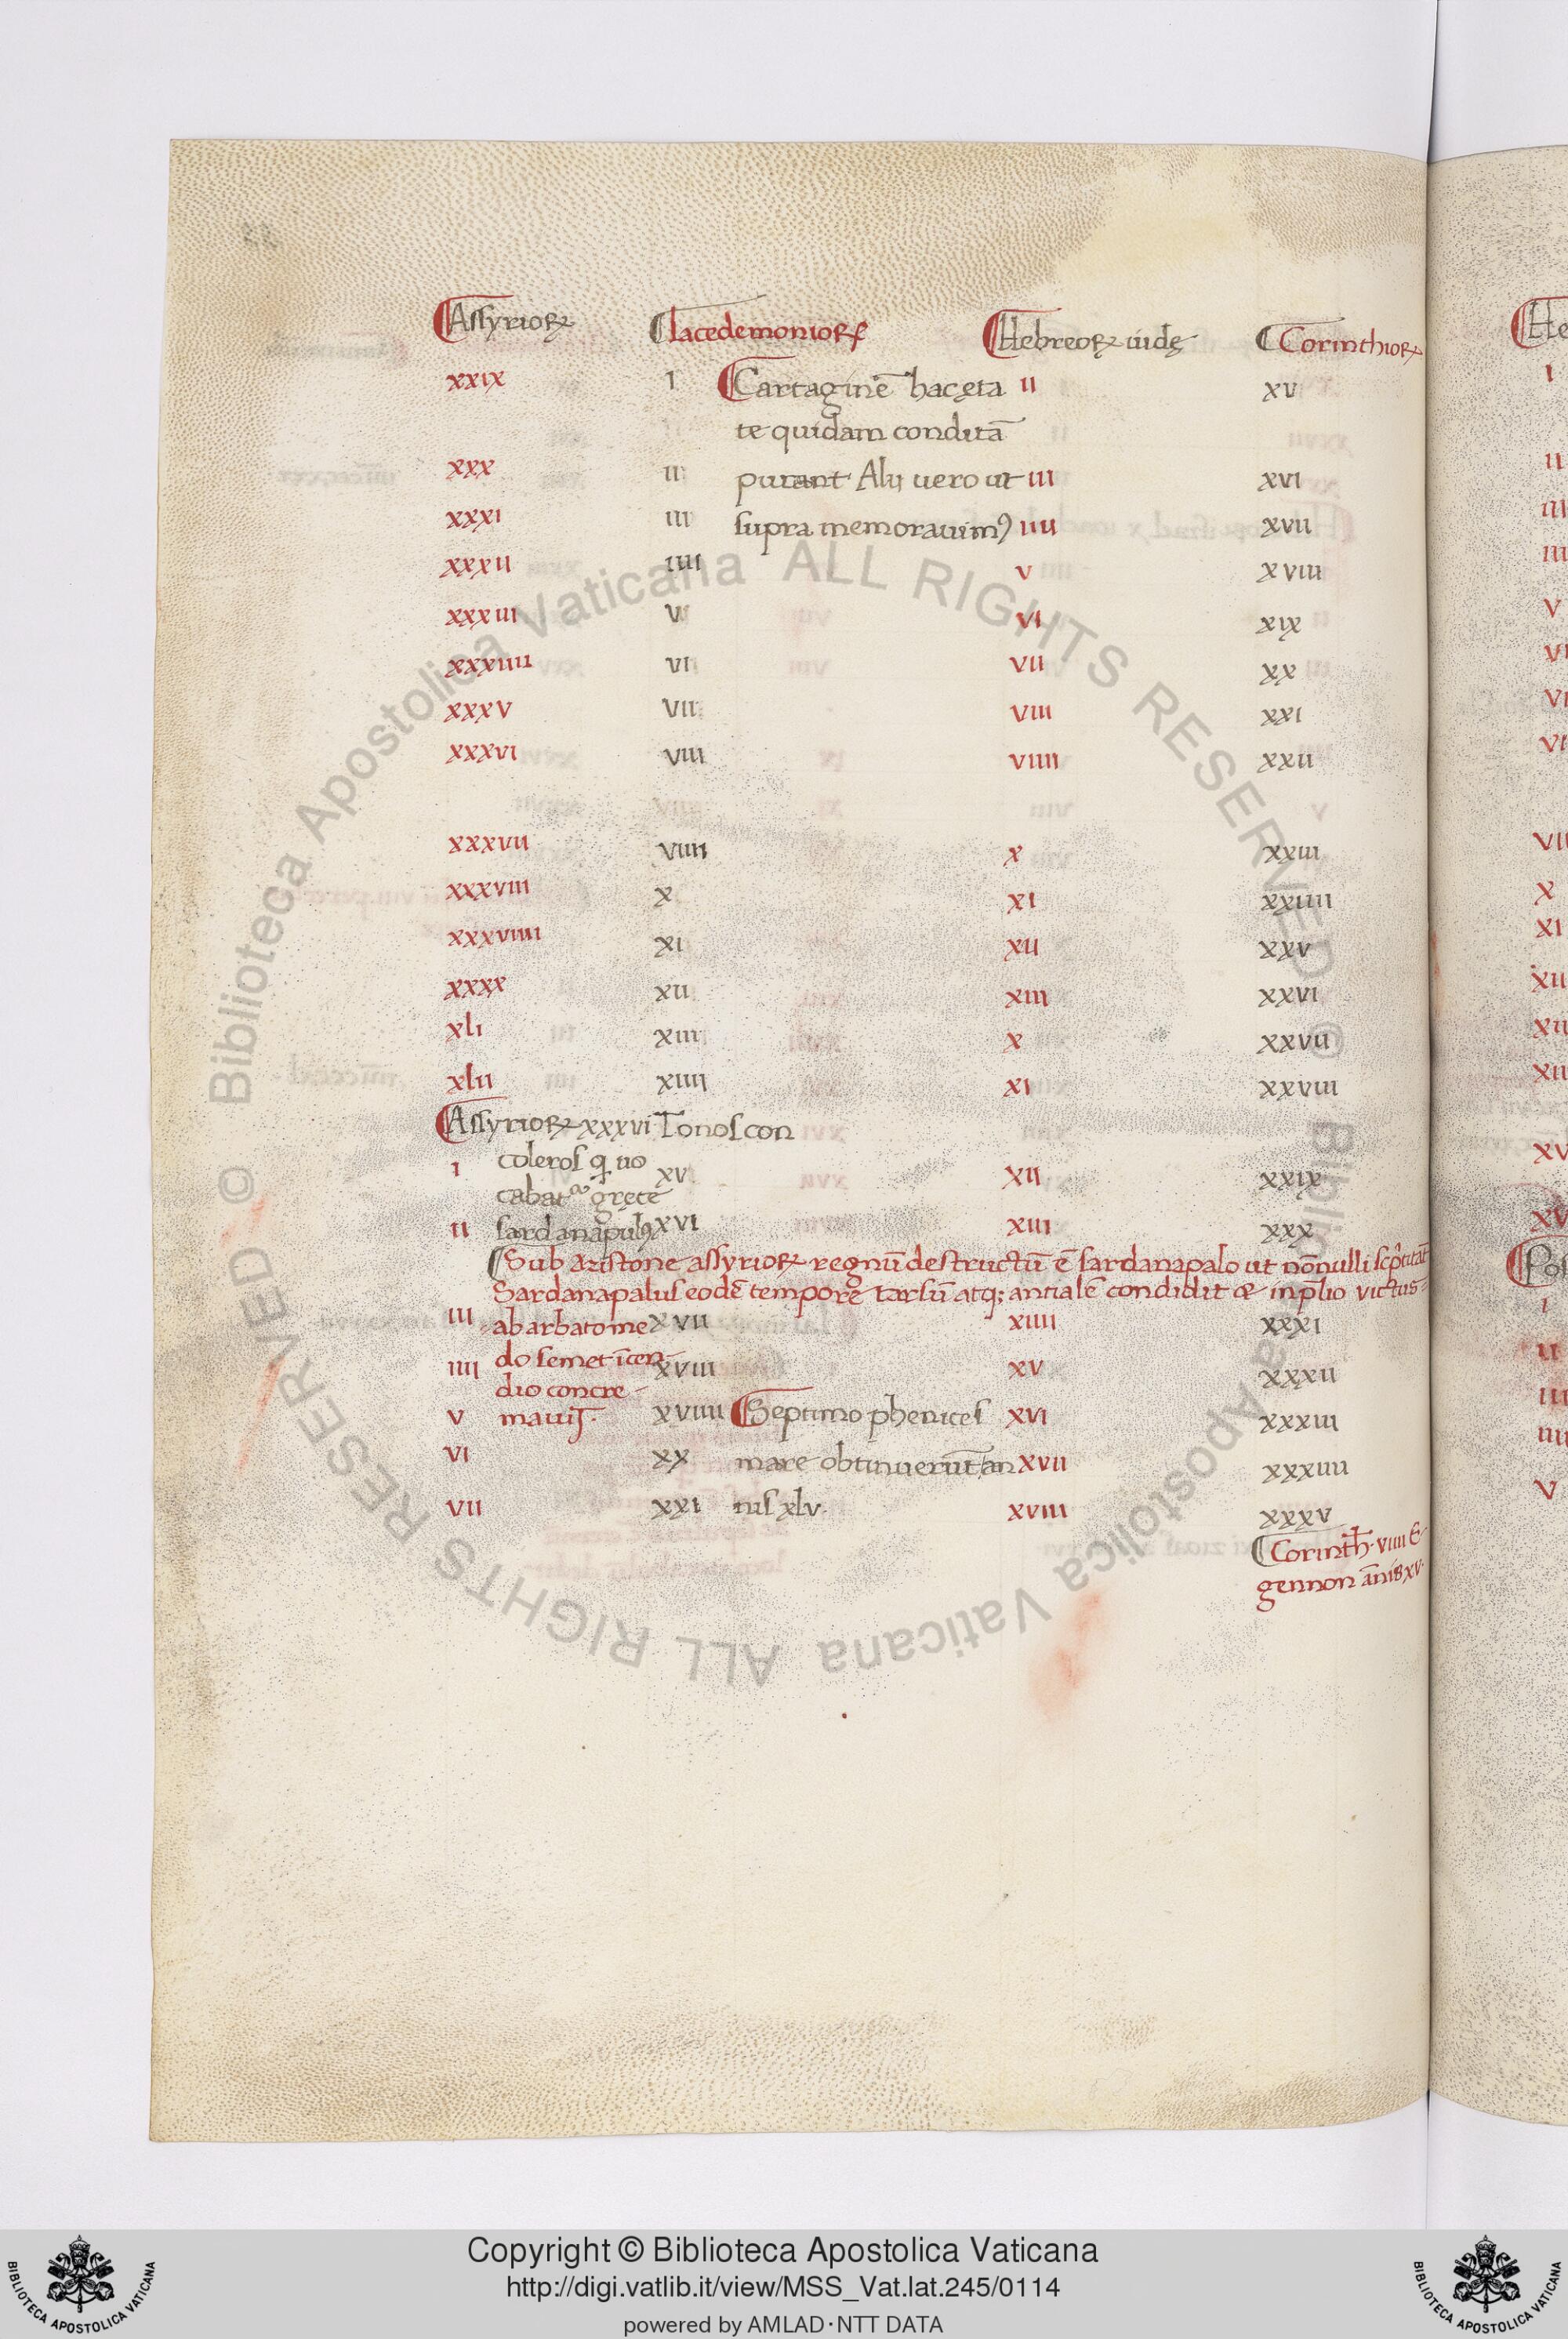 Assyrioꝝ lacedemonioꝝ Hebreoꝝ iudę Corinthioꝝ
xxix I Cartaginē hac ęta II xv
te quidam conditā
xxx II putant Alii uero ut III xvi
xxxi III supra memorauimꝰ IIII xvii
xxxii IIII v xviii
xxxiii V VI xix
xxxiiii VI VII xx
xxxv VII VIII xxi
xxxvi VIII VIIII xxii
xxxvii VIIII x xxiii
xxxviii x xi xxiiii
xxxviiii xi xii xxv
xxxx xii xiii xxvi
xli xiii x xxvii
xlii xiiii xi xxviii
Assyrioꝝ xxxvi Tonos con
I coleros q̄ uo xv xii xxix
cabatʳ gręce
II sardanapulꝰ xvi xiii xxx
Sub aristone assyrioꝝ regnū destructū ē sardanapalo ut nōnulli sc̄ptitāt
Sardanapalus eodē tempore tarsū atq; anciale condidit & in p̄lio victus
III ab arbato me xvii xiiii xxxi
do semet īcen
IIII xviii xv xxxii
dio concre
V mauit. xviiii Septimo phenices xvi xxxiii
VI xx mare obtinuerūt an xvii xxxiiii
VII xxi nis xlv. xviii xxxv
Corinth. viiii E
gennon ānis xv.
Copyright © Biblioteca Apostolica Vaticana
http://digi.vatlib.it/view/MSS_Vat.lat.245/0114
powered by AMLAD·NTT DATA
BIBLIOTECA APOSTOLICA VATICANA
BIBLIOTECA APOSTOLICA VATICANA
© Biblioteca Apostolica Vaticana ALL RIGHTS RESERVED
© Biblioteca Apostolica Vaticana ALL RIGHTS RESERVED